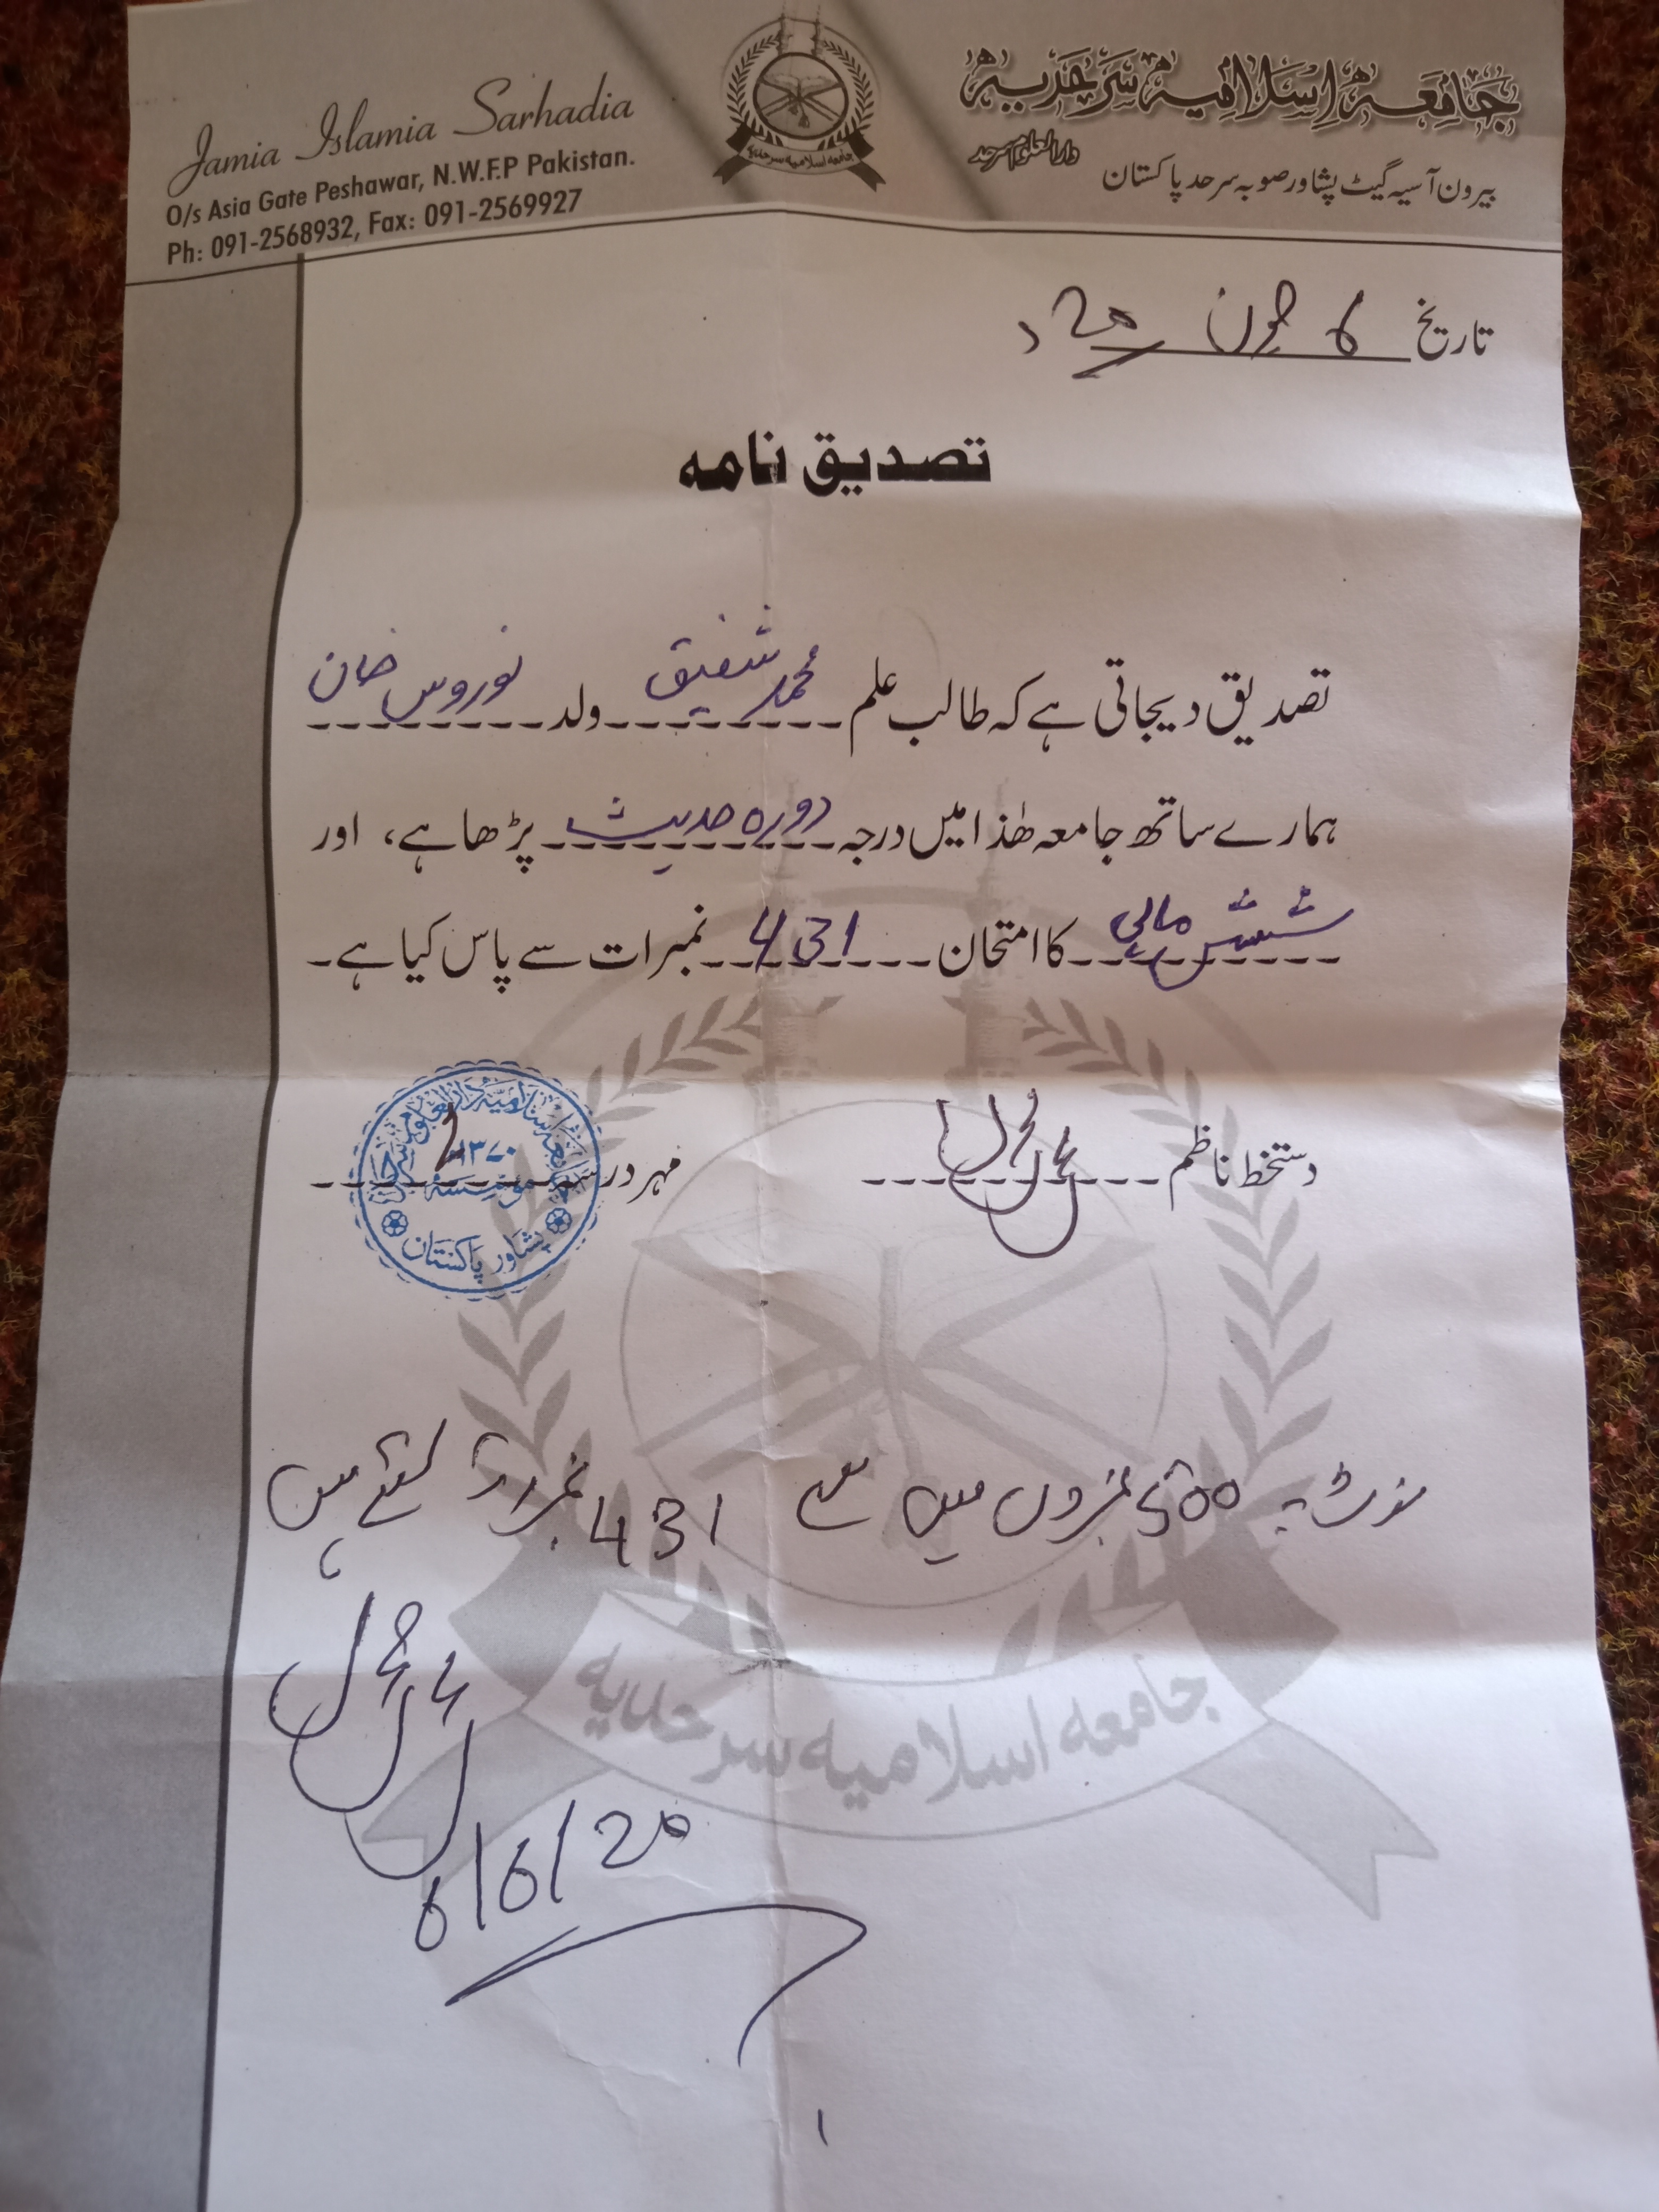 Jamia Islamia Sarhadia
O/s Asia Gate Peshawar, N.W.F.P Pakistan.
Ph: 091-2568932, Fax: 091-2569927
جامعہ اسلامیہ سرحدیہ
دارالعلوم سرحد
بیرون آسیہ گیٹ پشاور صوبہ سرحد پاکستان
جامعہ اسلامیہ سرحدیہ
تاریخ 6 جون 20ء
تصدیق نامہ
تصدیق دیجاتی ہے کہ طالب علم محمد شفیق ولد نوروس خان
ہمارے ساتھ جامعہ ھٰذا میں درجہ دورہ حدیث پڑھا ہے، اور
شش ماہی کا امتحان 431 نمبرات سے پاس کیا ہے۔
دستخط ناظم
مہر درسہ
۱۳۷۰
پشاور پاکستان
نوٹ :۔ 500 نمبروں میں سے 431 نمبرات لئے ہیں
6/6/20
جامعه اسلامیه سرحدیه